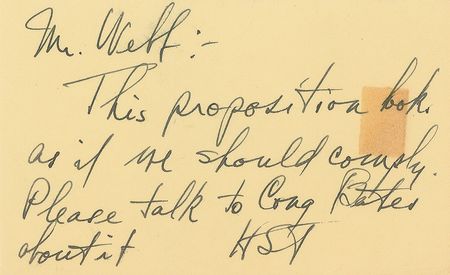 Mr. Webb:-
This proposition looks
as if we should comply.
Please talk to Cong Bates
about it HST